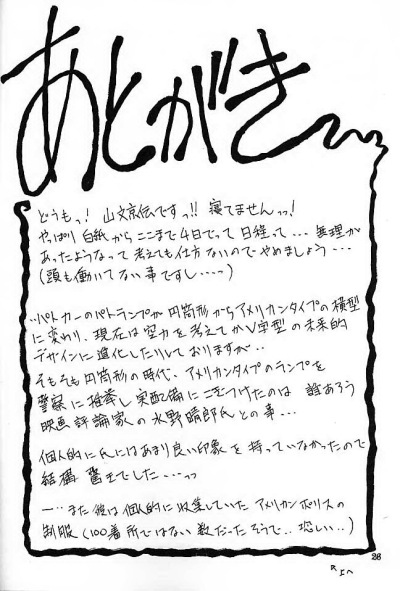 あとがき
どうもっ! 山文京伝ですっ!! 寝てませんっっ!
やっぱり 白紙から ここまで 4日でって 日程って... 無理が
あったようなって 考えても仕方 ないので やめましょう...
(頭も働いて ない事ですし...っ)
..パトカーのパトランプが 円筒形から アメリカンタイプの横型
に変わり、現在は空力を考えてか V字型 の未来的
デザインに進化したりして おりますが..
そもそも 円筒形の時代、アメリカンタイプの ランプを
警察に推薦し 実配備に こぎつけたのは 誰あろう
映画評論家の 水野晴郎氏 との事...
個人的に 氏には あまり良い印象 を 持って いなかったので
結構 でした...っっ
ー..また 彼は個人的に収集していた アメリカンポリスの
制服 (100着所ではない 数だった そうで.. 恐しい..)
26